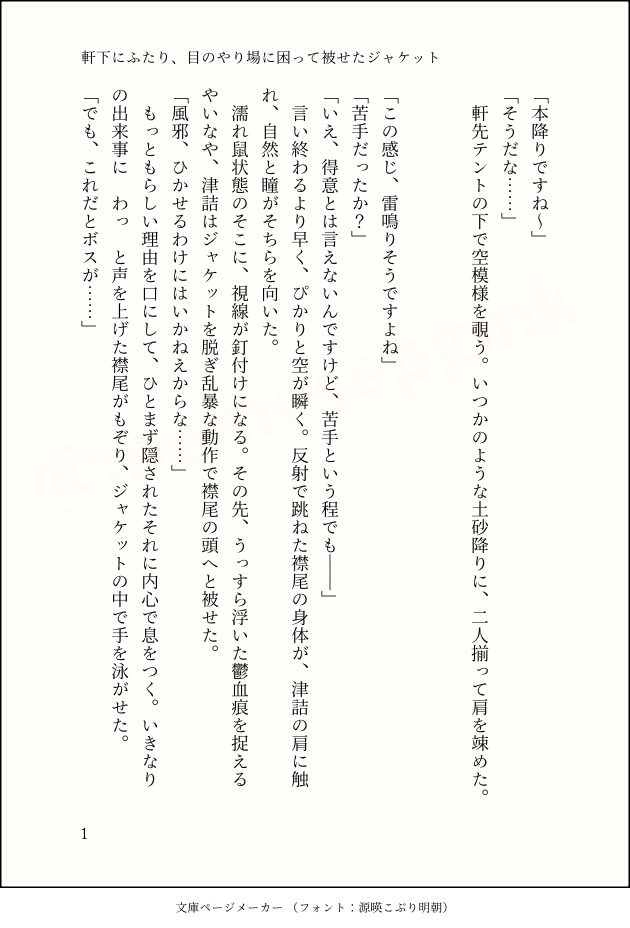 軒下にふたり、目のやり場に困って被せたジャケット
「本降りですね～」
「そうだな……」
　軒先テントの下で空模様を覗う。いつかのような土砂降りに、二人揃って肩を竦めた。
「この感じ、雷鳴りそうですよね」
「苦手だったか？」
「いえ、得意とは言えないんですけど、苦手という程でも――」
　言い終わるより早く、ぴかりと空が瞬く。反射で跳ねた襟尾の身体が、津詰の肩に触
れ、自然と瞳がそちらを向いた。
　濡れ鼠状態のそこに、視線が釘付けになる。その先、うっすら浮いた鬱血痕を捉える
やいなや、津詰はジャケットを脱ぎ乱暴な動作で襟尾の頭へと被せた。
「風邪、ひかせるわけにはいかねえからな……」
　もっともらしい理由を口にして、ひとまず隠されたそれに内心で息をつく。いきなり
の出来事に　わっ　と声を上げた襟尾がもぞり、ジャケットの中で手を泳がせた。
「でも、これだとボスが……」
1
文庫ページメーカー （フォント：源暎こぶり明朝）